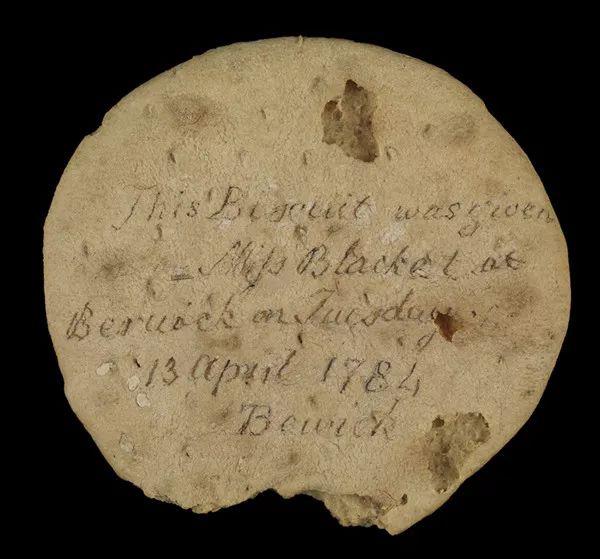 This Biscuit was given
- Miss Blacket at
Berwick on Tuisday
13 April 1784
Bewick